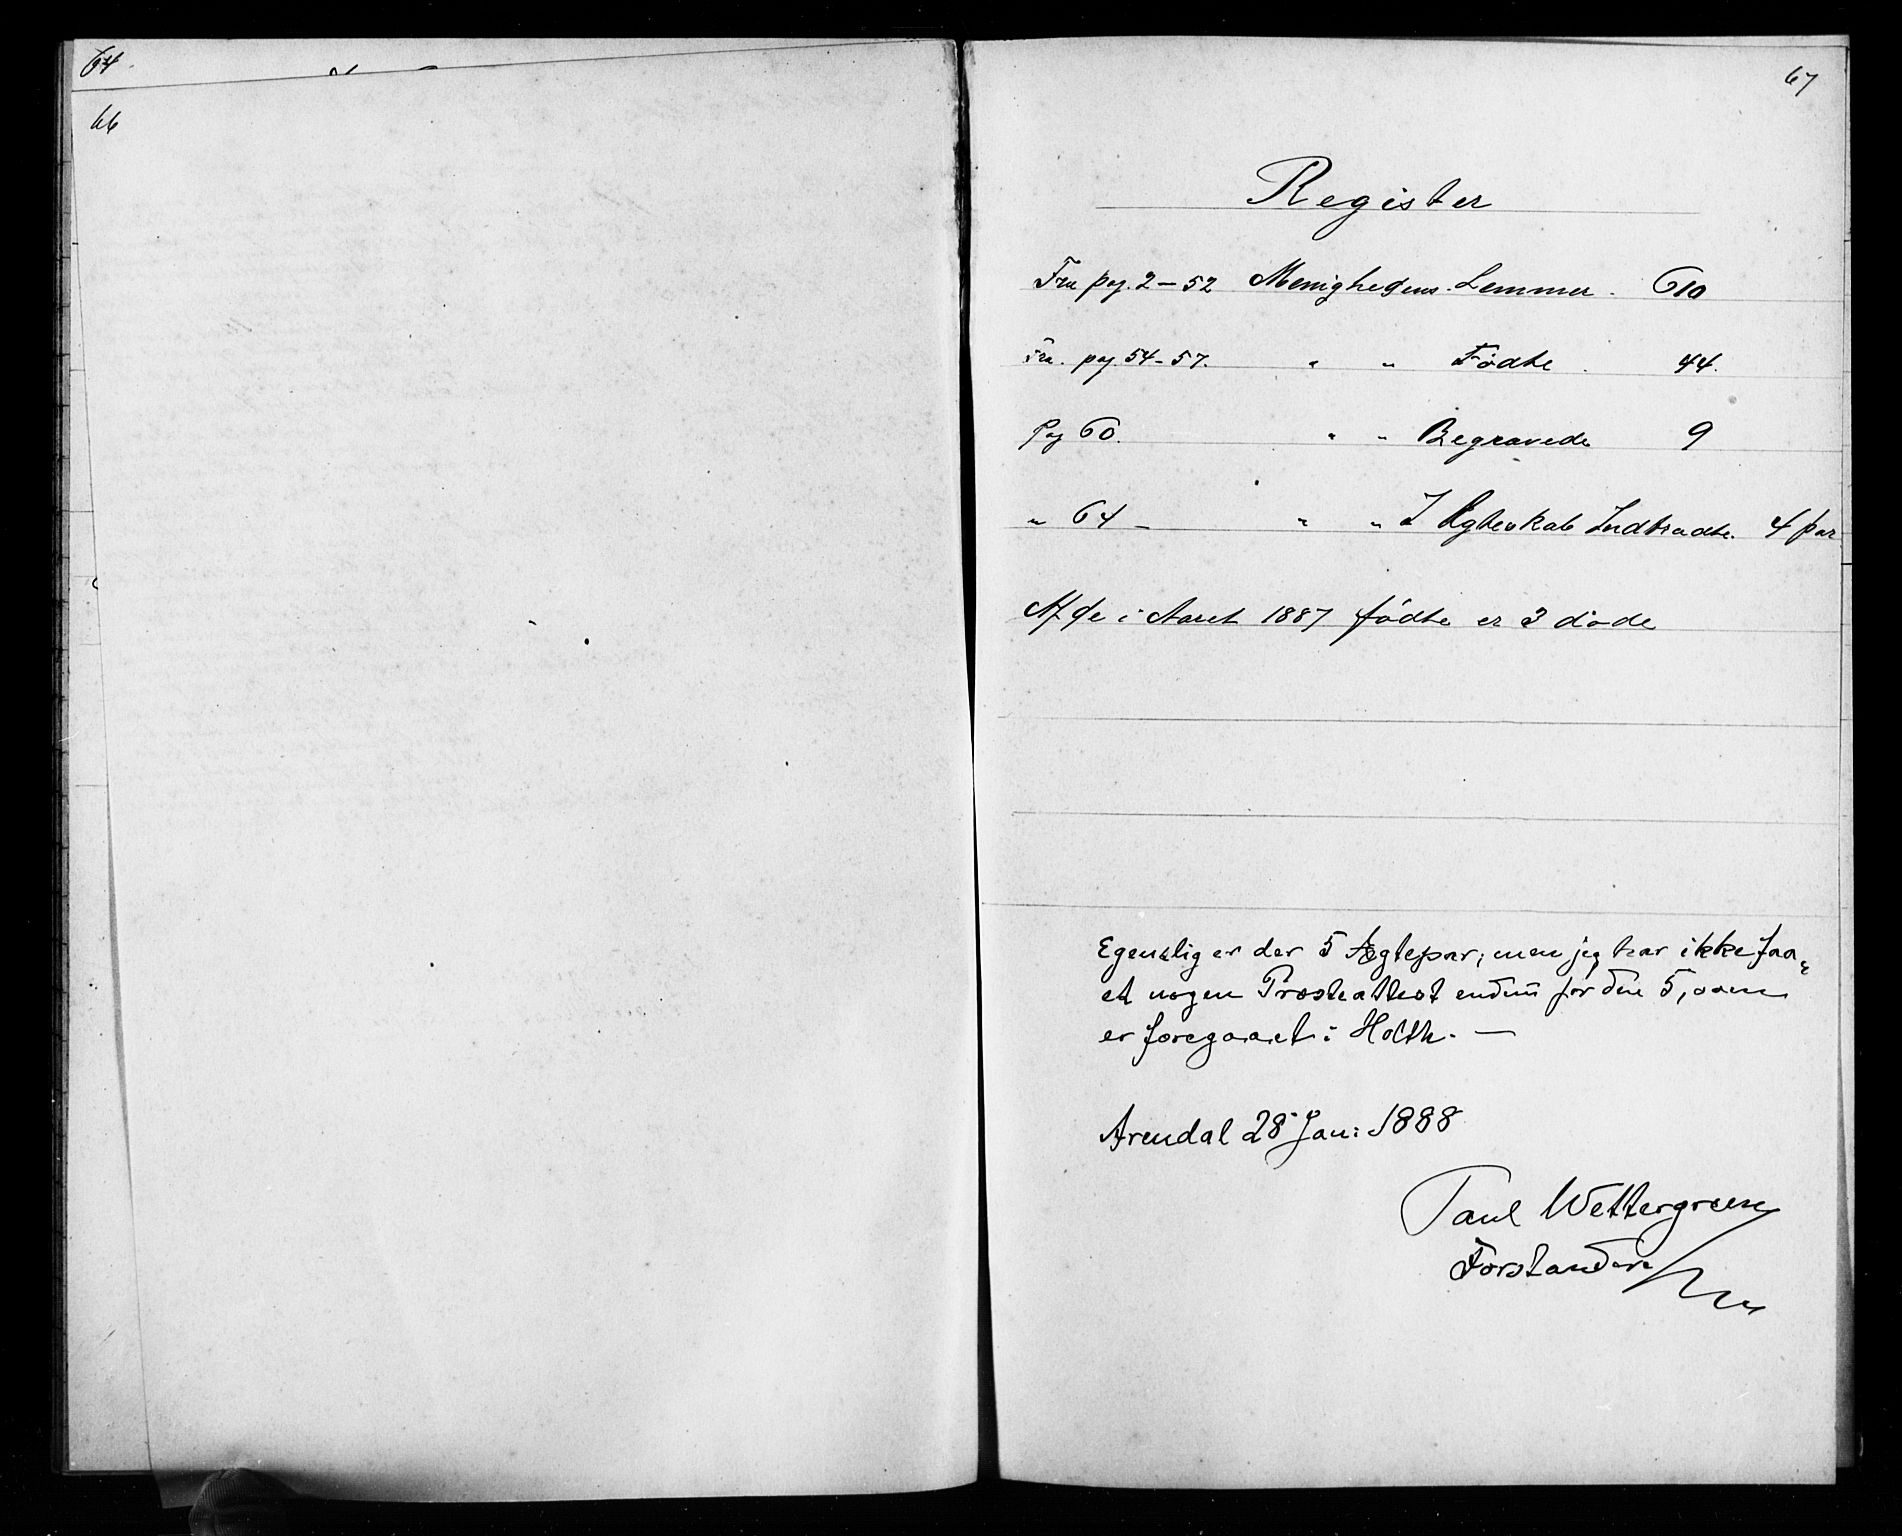 64.
66
67
Register
Fra pag. 2 — 52 Menighedens Lemmer. 610
Fra. pag. 54 - 57. " " Fødte . 44.
Pag 60. " " Begravede 9
" 64 — " " I Egteskab Indtradte. 4 par
Af de i Aaret 1887 fødte er 3 døde
Egentlig er der 5 Ægtepar; men jeg har ikke faa-
et nogen Presteattest endnu for den 5, som
er foregaaet i Holth. —
Arendal 28 Jan: 1888
Paul Wettergreen
Forstander